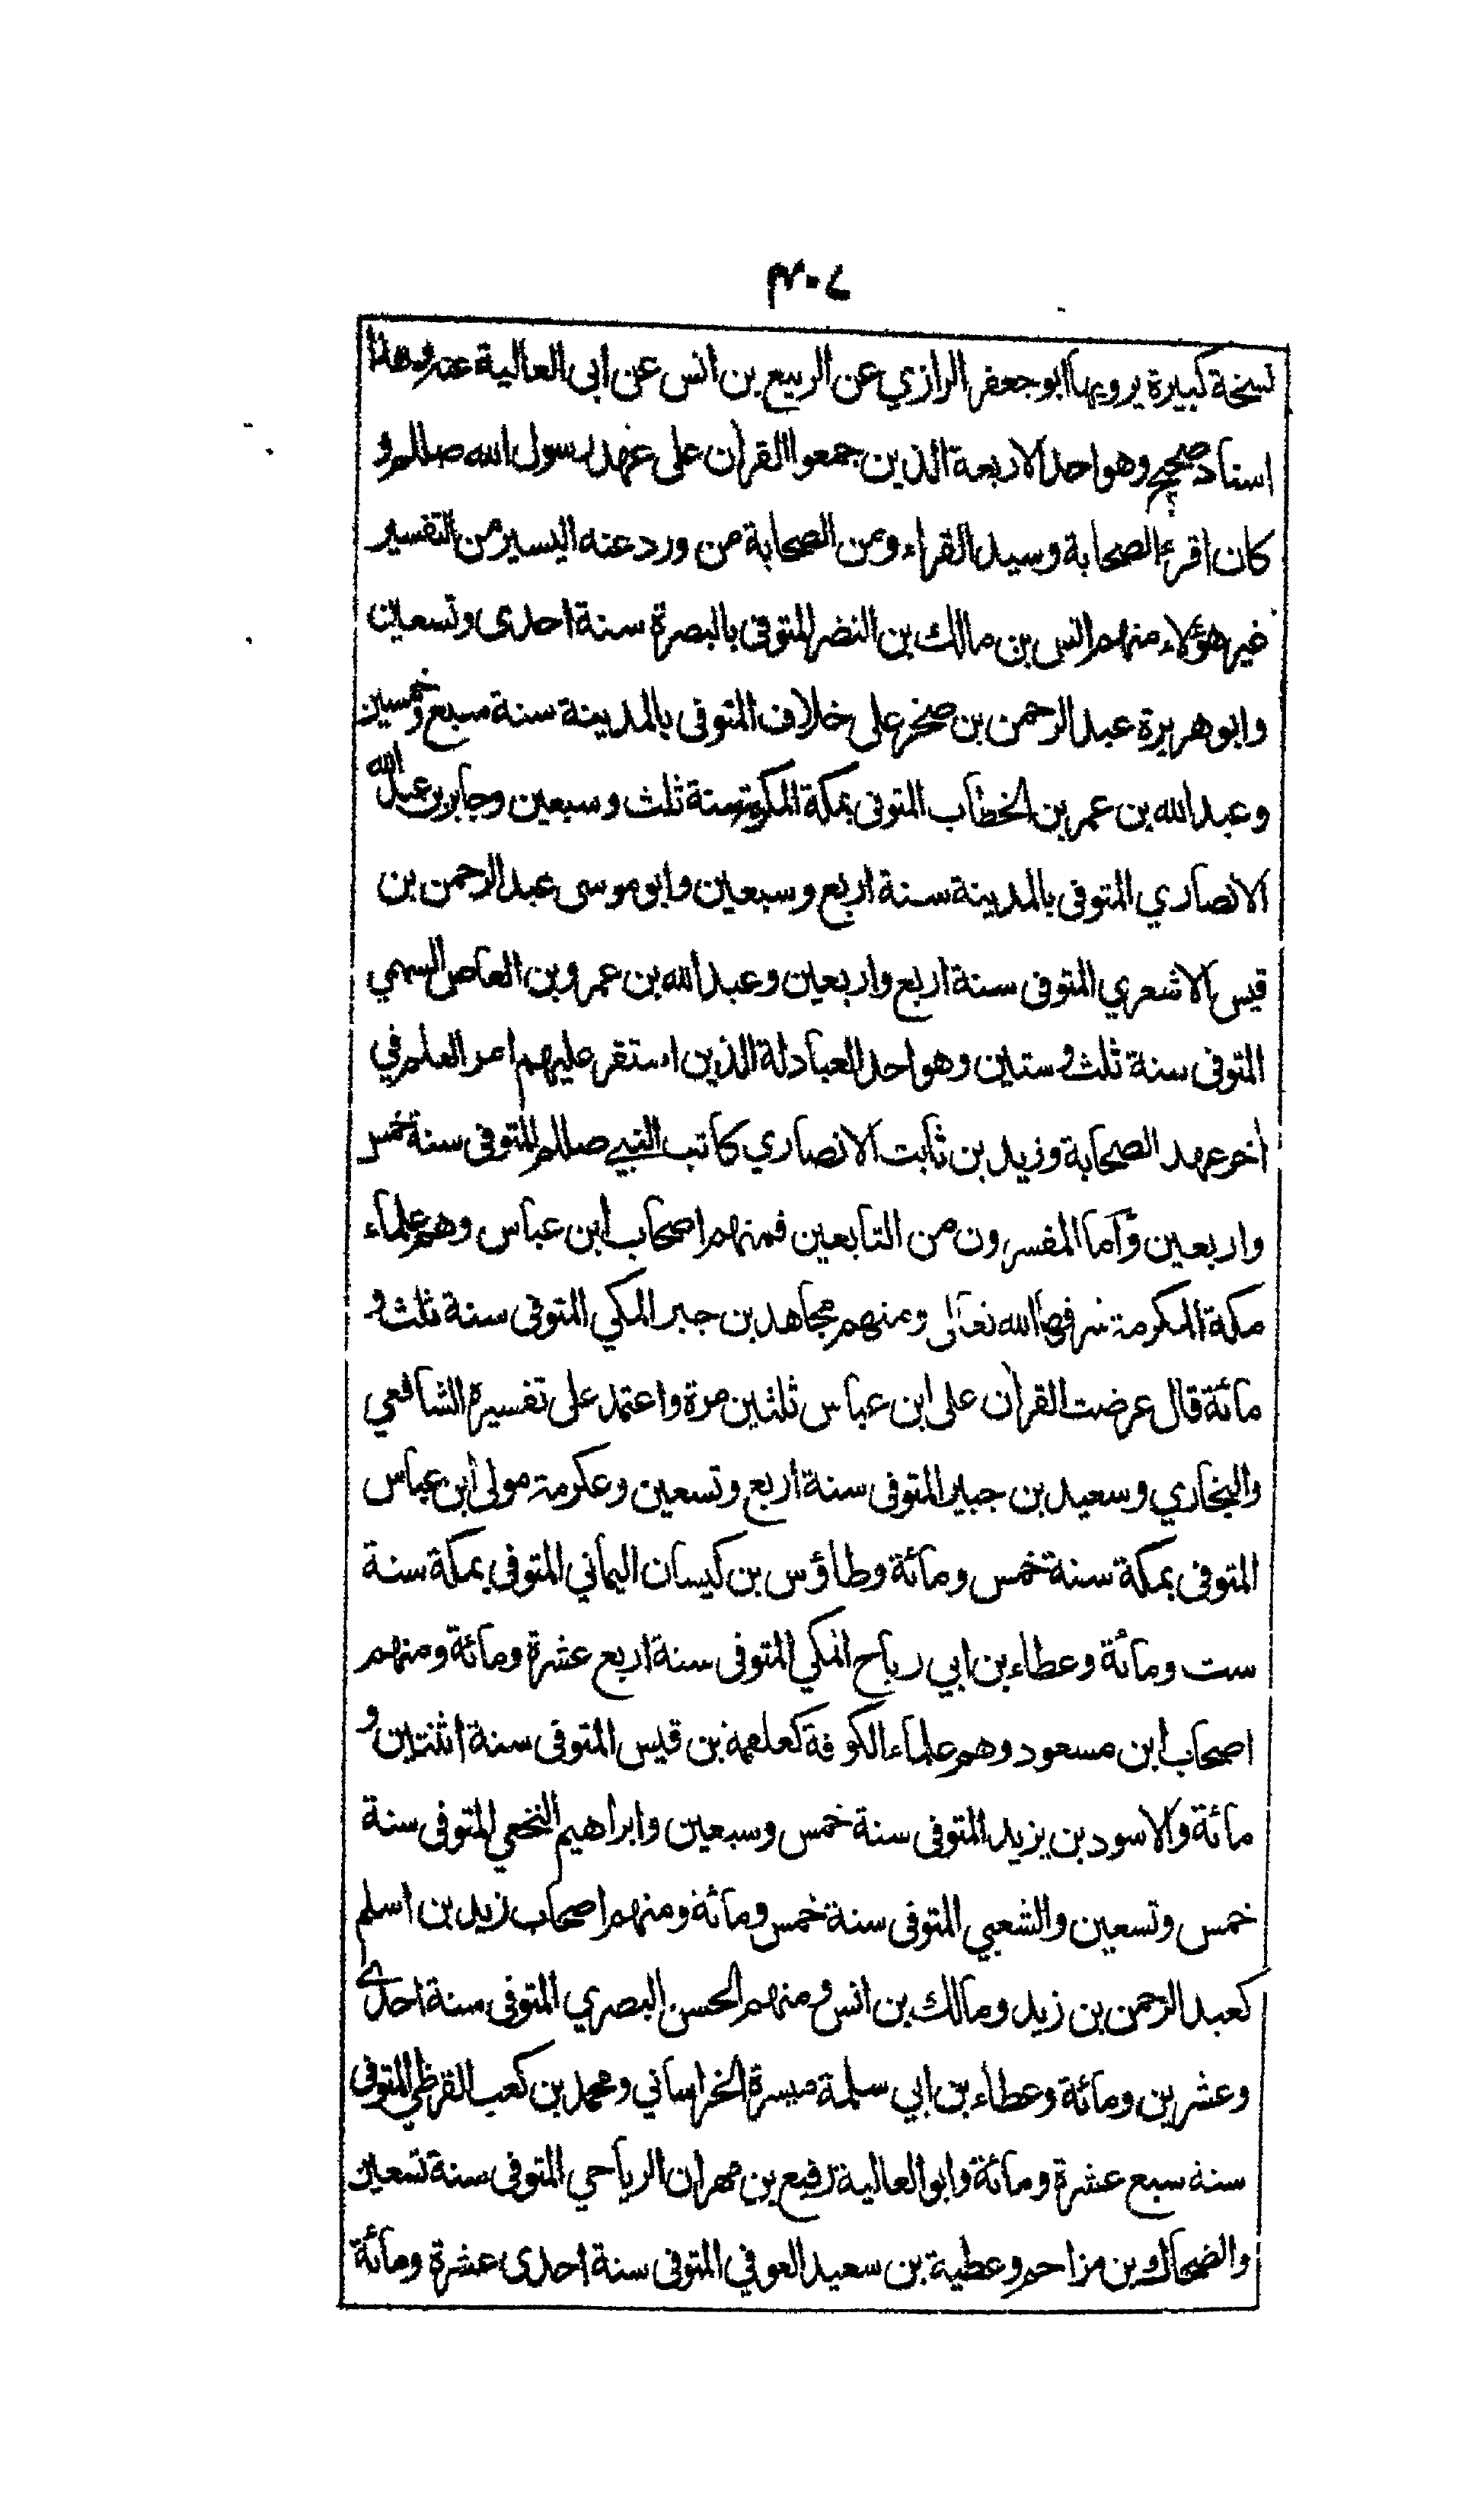 ٣٠٧
نسخة كبيرة يرويها ابو جعفر الرازي عن الربيع بن انس عن ابى العالية عنه وهذا
اسناد صحيح وهو احد الاربعة الذين جمعوا القرأن على عهد رسول الله صللم و
كان اقرء الصحابة وسيد القراء ومن الصحابة من ورد عنه اليسير من التفسير
غير هؤلاء منهم انس بن مالك بن النضر المتوفى بالبصرة سنة احدى وتسعين
وابو هريرة عبد الرحمن بن صخر على خلاف المتوفى بالمدينة سنة سبع وخمسين
وعبد الله بن عمر بن الخطاب المتوفى بمكة المكرمة سنة ثلث وسبعين وجابر بن عبد الله
الانصاري المتوفى بالمدينة سنة اربع وسبعين وابو موسى عبد الرحمن بن
قيس الاشعري المتوفى سنة اربع واربعين وعبد الله بن عمرو بن العاص السهمي
المتوفى سنة ثلث وستين وهو احد العبادلة الذين استقر عليهم امر العلم في
أخر عهد الصحابة وزيد بن ثابت الانصاري كاتب النبي صللم المتوفى سنة خمس
واربعين وآما المفسرون من التابعين فمنهم اصحاب ابن عباس وهم علماء
مكة المكرمة شرفها الله تعالى ومنهم مجاهد بن جبر المكي المتوفى سنة ثلث و
مائة قال عرضت القرأن على ابن عباس ثلثين مرة واعتمد على تفسيره الشافعي
والبخاري وسعيد بن جبير المتوفى سنة اربع وتسعين وعكرمة مولى ابن عباس
المتوفى بمكة سنة خمس ومائة وطاؤس بن كيسان اليماني المتوفى بمكة سنة
ست ومائة وعطاء بن ابي رباح المكي المتوفى سنة اربع عشرة ومائة ومنهم
اصحاب ابن مسعود وهم علماء الكوفة كعلقمة بن قيس المتوفى سنة اثنتين و
مائة والاسود بن يزيد المتوفى سنة خمس وسبعين وابراهيم النخعي المتوفى سنة
خمس وتسعين والشعبي المتوفى سنة خمس ومائة ومنهم اصحاب زيد بن اسلم
كعبد الرحمن بن زيد ومالك بن انس ومنهم الحسن البصري المتوفى سنة احدى
وعشرين ومائة وعطاء بن ابي سلمة ميسرة الخراساني ومحمد بن كعب القرظي المتوفى
سنة سبع عشرة ومائة وابو العالية رفيع بن مهران الرياحي المتوفى سنة تسعين
والضحاك بن مزاحم وعطية بن سعيد العوفي المتوفى سنة احدى عشرة ومائة